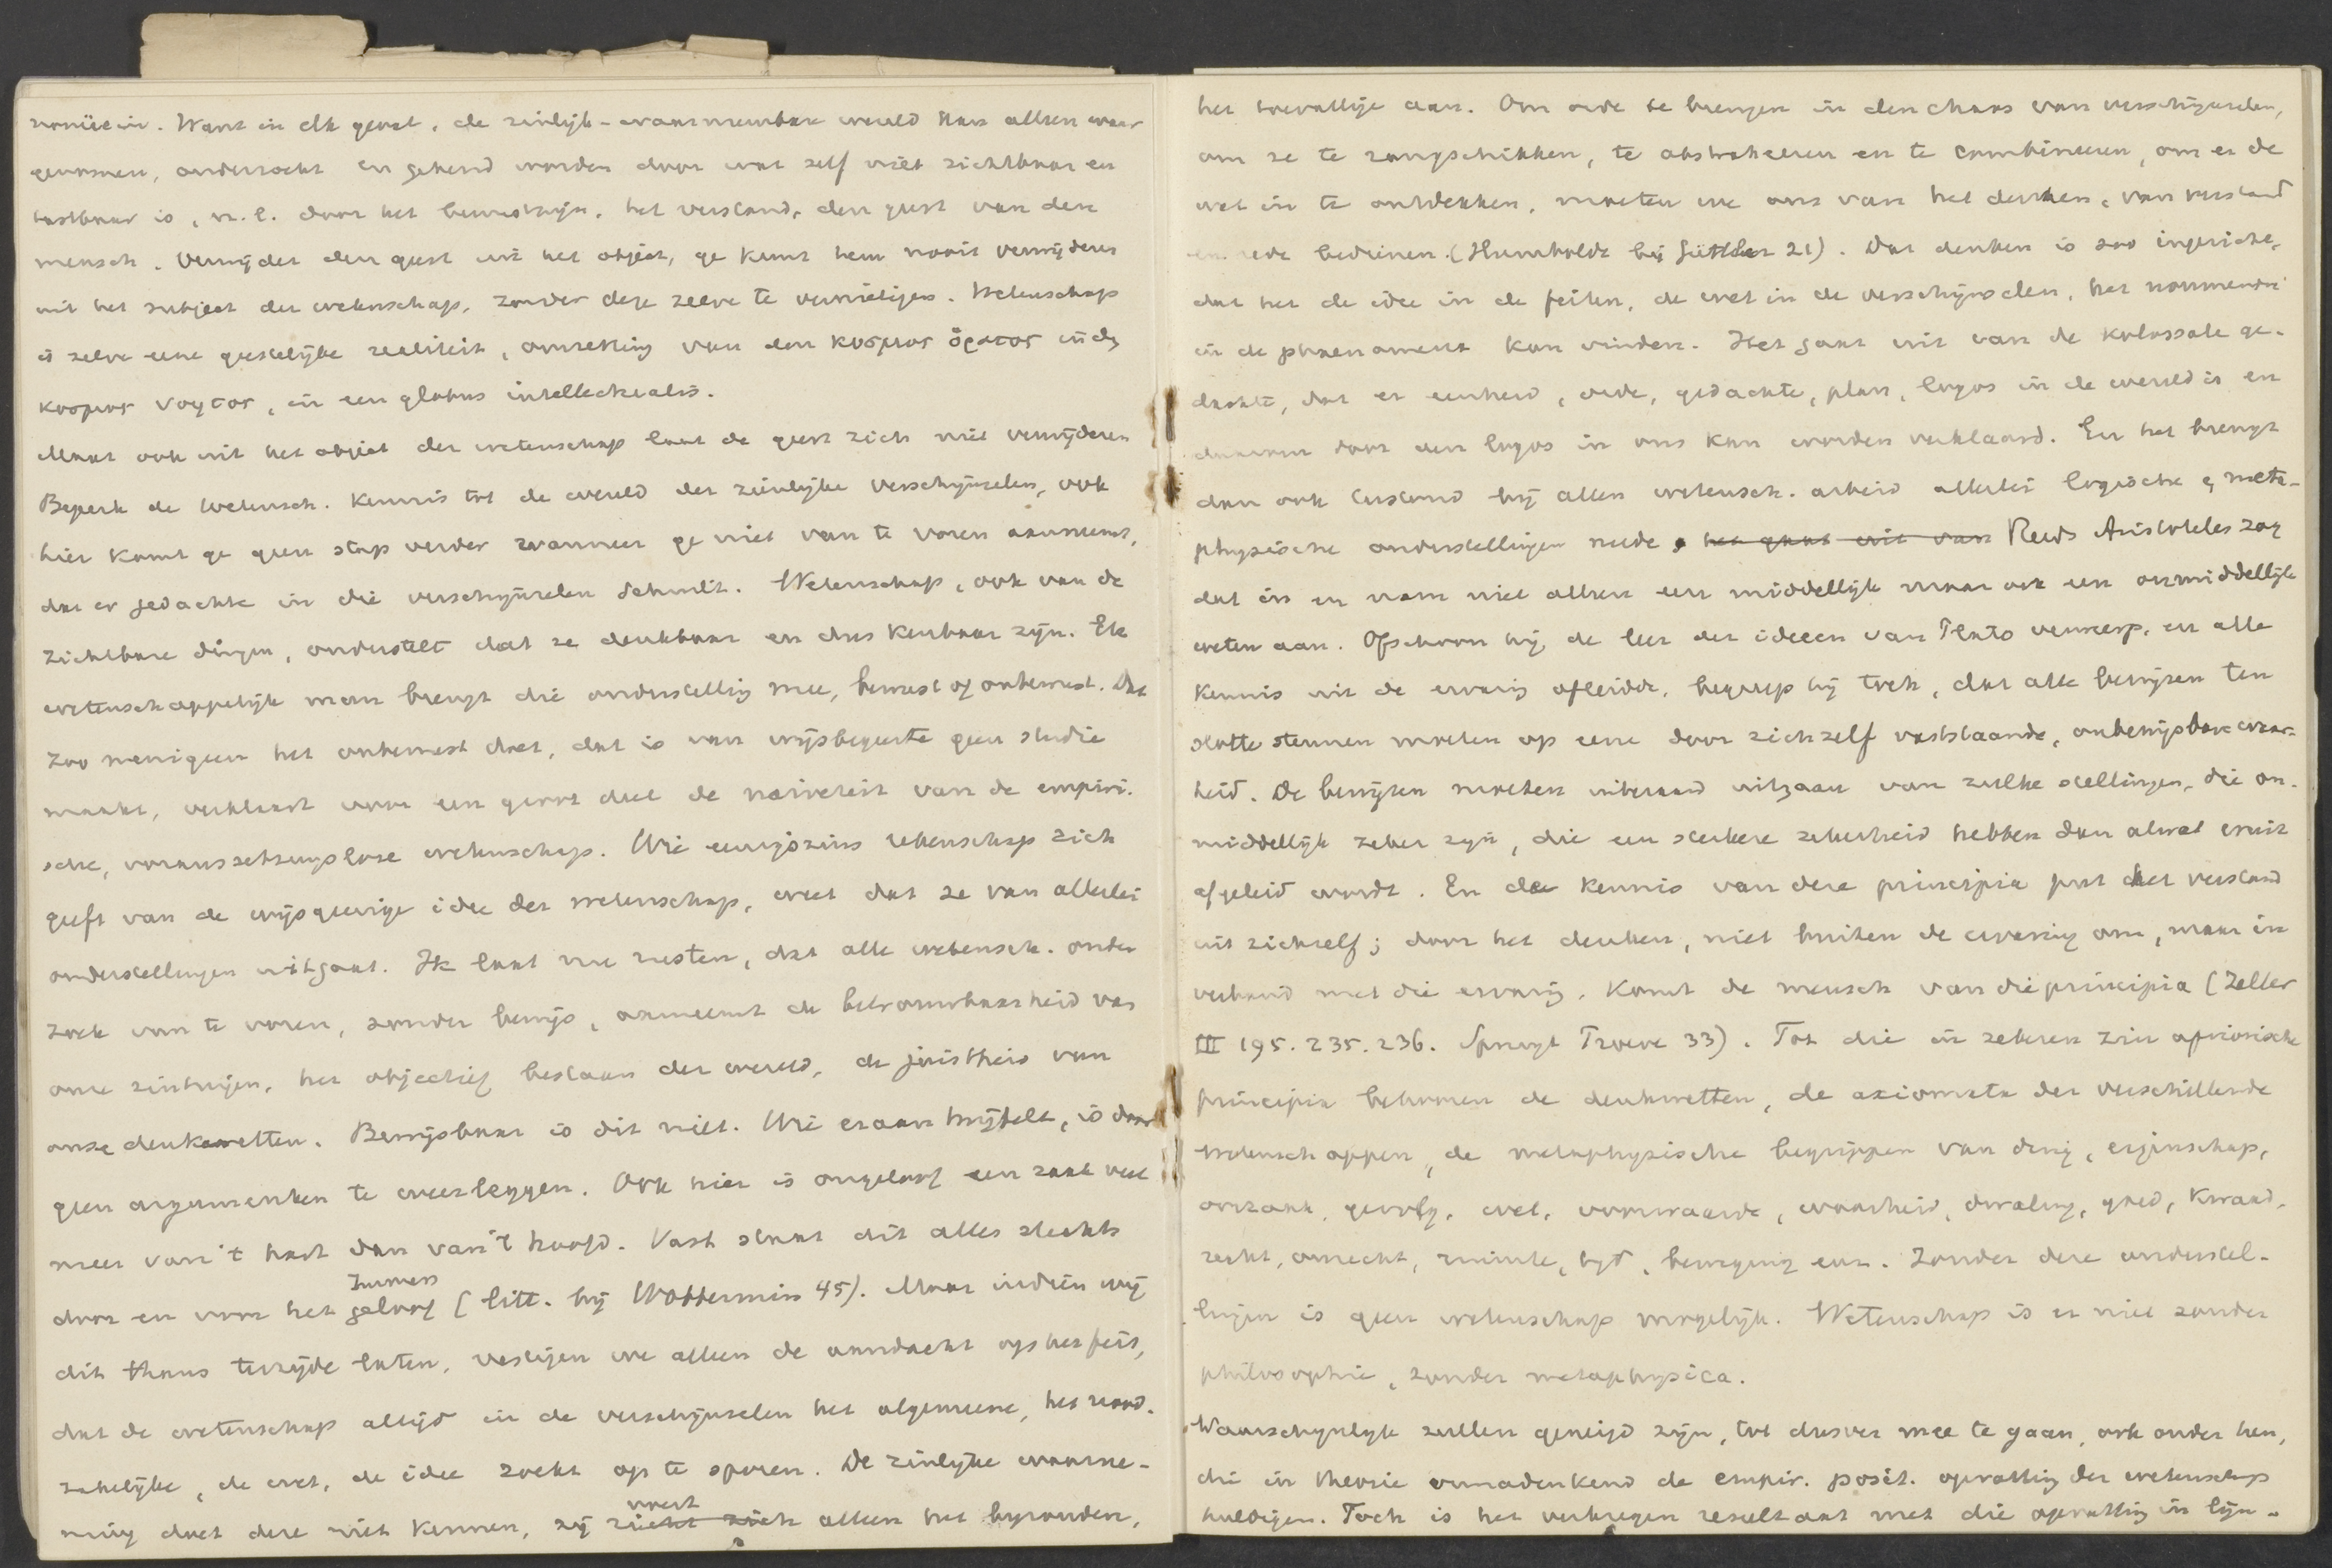 Want in elk geval, de zinlijk-waarneembare wereld kan alleen waar
genomen, onderzocht en gekend worden door wat zelf niet zichtbaar en
tastbaar is, n.l. door het bewustzijn, het verstand, den geest van den
mensch. Verwijder den geest uit het object, ge kunt hem nooit verwijderen
uit het subject der wetenschap, zonder deze zelve te vernietigen. Wetenschap
is zelve eene geestelijke realiteit, omzetting van den κοσμος ὁρατος in dn
κοσμος νοητος, in een globus intellectualis.
Maar ook uit het object der wetenschap laat de geest zich niet verwijderen
Beperk de wetensch. kennis tot de wereld der zinlijke verschijnselen, ook
hier komt ge geen stap verder wanneer ge niet van te voren aanneemt,
dat er gedachte in die verschijnselen schuilt. Wetenschap, ook van de
zichtbare dingen, onderstelt dat ze denkbaar en dus kenbaar zijn. Elk
wetenschappelijk man brengt die onderstelling mee, bewust of onbewust. Dat
zoo menigeen het onbewust doet, dat is van wijsbegeerte geen studie
maakt, verklaart voor een groot deel de naiveteit van de empiri-
sche, voraussetzungslose wetenschap. Wie eenigszins rekenschap zich
geeft van de wijsgeerige idee der wetenschap, weet dat ze van allerlei
onderstellingen uitgaat. Ik laat nu rusten, dat alle wetensch. onder
zoek van te voren, zonder bewijs, aanneemt de betrouwbaarheid van
onze zintuigen, het objectief bestaan der wereld, de juistheid van
onze denkwetten. Bewijsbaar is dit niet. Wie eraan twijfelt, is door
geen argumenten te weerleggen. Ook hier is ongeloof een zaak veel
meer van 't hart dan van 't hoofd. Vast staat dit alles slechts
door en voor het geloof (litt. bij Wobbermin 45). Maar indien wij
dit thans terzijde laten, vestigen we alleen de aandacht op het feit,
dat de wetenschap altijd in de verschijnselen het algemeene, het nood-
zakelijke, de wet, de idee zoekt op te sporen. De zinlijke waarne-
ming doet deze niet kennen, zij wijst alleen het byzondere,
het toevallige aan. Om orde te brengen in den chaos van verschijnselen,
om ze te rangschikken, te abstraheeren en te combineeren, om er de
wet in te ontdekken, moeten we ons van het denken, van verstand
en rede bedienen. (Humboldt bij Güttler 21). Dat denken is zoo ingericht,
dat het de idee in de feiten, de wet in de verschijnselen, het noumenon
in de phaenomena kan vinden. Het gaat uit van de kolossale ge-
dachte, dat er eenheid, orde, gedachte, plan, logos in de wereld is en
daarom door den logos in ons kan worden verklaard. En het brengt
dan ook bij allen wetensch. arbeid allerlei logische en meta-
physische onderstellingen mede. het gaat uit van Reeds Aristoteles zag
dat in en nam niet alleen een middellijk maar ook een onmiddellijk
weten aan. Ofschoon hij de leer der ideeen van Plato verwierp, en alle
kennis uit de ervaring afleidde, begreep hij toch, dat alle bewijzen ten
slotte steunen moeten op eene door zichzelf vaststaande, onbewijsbare waar-
heid. De bewijzen moeten uitgaan van zulke stellingen, die on-
middellijk zeker zijn, die een sterkere zekerheid hebben dan alwat eruit
afgeleid wordt. En de kennis van deze principia put het verstand
uit zichzelf; door het denken, niet buiten de ervaring om, maar in
verband met die ervaring, komt de mensch van die principia (Zeller
III 195. 235. 236. Spruyt Proeve 33). Tot die in zekeren zin apriorische
principia behooren de denkwetten, de axiomata der verschillende
wetenschappen, de metaphysische begrippen van ding, eigenschap,
oorzaak, gevolg, wet, voorwaarde, waarheid, dwaling, goed, kwaad,
recht, onrecht, ruimte, tijd, beweging enz. Zonder deze onderstel-
lingen is geen wetenschap mogelijk. Wetenschap is er niet zonder
philosophie, zonder metaphysica.
Waarschijnlijk zullen geneigd zijn, tot dusver mee te gaan, ook onder hen,
die in theorie onnadenkend de empir. posit. opvatting der wetenschap
huldigen. Toch is het verkregen resultaat met die opvatting in lijn-